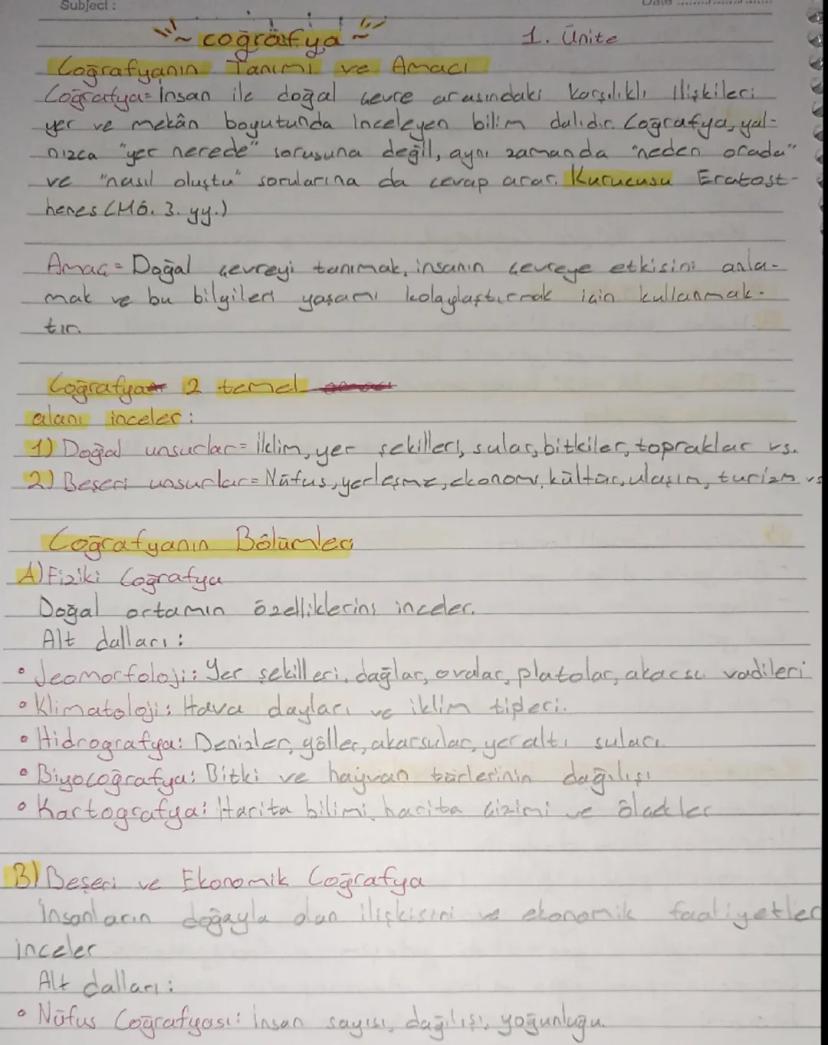 Subject :
coğrafya 1. Ünite
Coğrafyanın Tanımı ve Amacı
Coğrafya= İnsan ile doğal çevre arasındaki karşılıklı ilişkileri
yer ve mekân boyutunda inceleyen bilim dalıdır. Coğrafya, yal-
nızca "yer nerede" sorusuna değil, aynı zamanda "neden orada"
ve "nasıl oluştu" sorularına da cevap arar. Kurucusu Eratost-
henes (MÖ. 3. yy.)
Amaç= Doğal çevreyi tanımak, insanın çevreye etkisini anla-
mak ve bu bilgileri yaşamı kolaylaştırmak için kullanmak-
tır.
Coğrafya 2 temel
alanı inceler:
1) Doğal unsurlar= İklim, yer şekilleri, sular, bitkiler, topraklar vs.
2) Beşeri unsurlar= Nüfus, yerleşme, ekonomi, kültür, ulaşım, turizm vs
Coğrafyanın Bölümleri
A) Fiziki Coğrafya
Doğal ortamın özelliklerini inceler.
Alt dalları:
• Jeomorfoloji: Yer şekilleri, dağlar, ovalar, platolar, akarsu vadileri
• Klimatoloji: Hava dayları ve iklim tipleri.
• Hidrografya: Denizler, göller, akarsular, yer altı suları
• Biyocoğrafya: Bitki ve hayvan türlerinin dağılışı
• Kartografya: Harita bilimi, harita çizimi ve ölçekler
B) Beşeri ve Ekonomik Coğrafya
İnsanların doğayla olan ilişkisini ve ekonomik faaliyetler
inceler
Alt dalları:
• Nüfus Coğrafyası: İnsan sayısı, dağılışı, yoğunluğu.